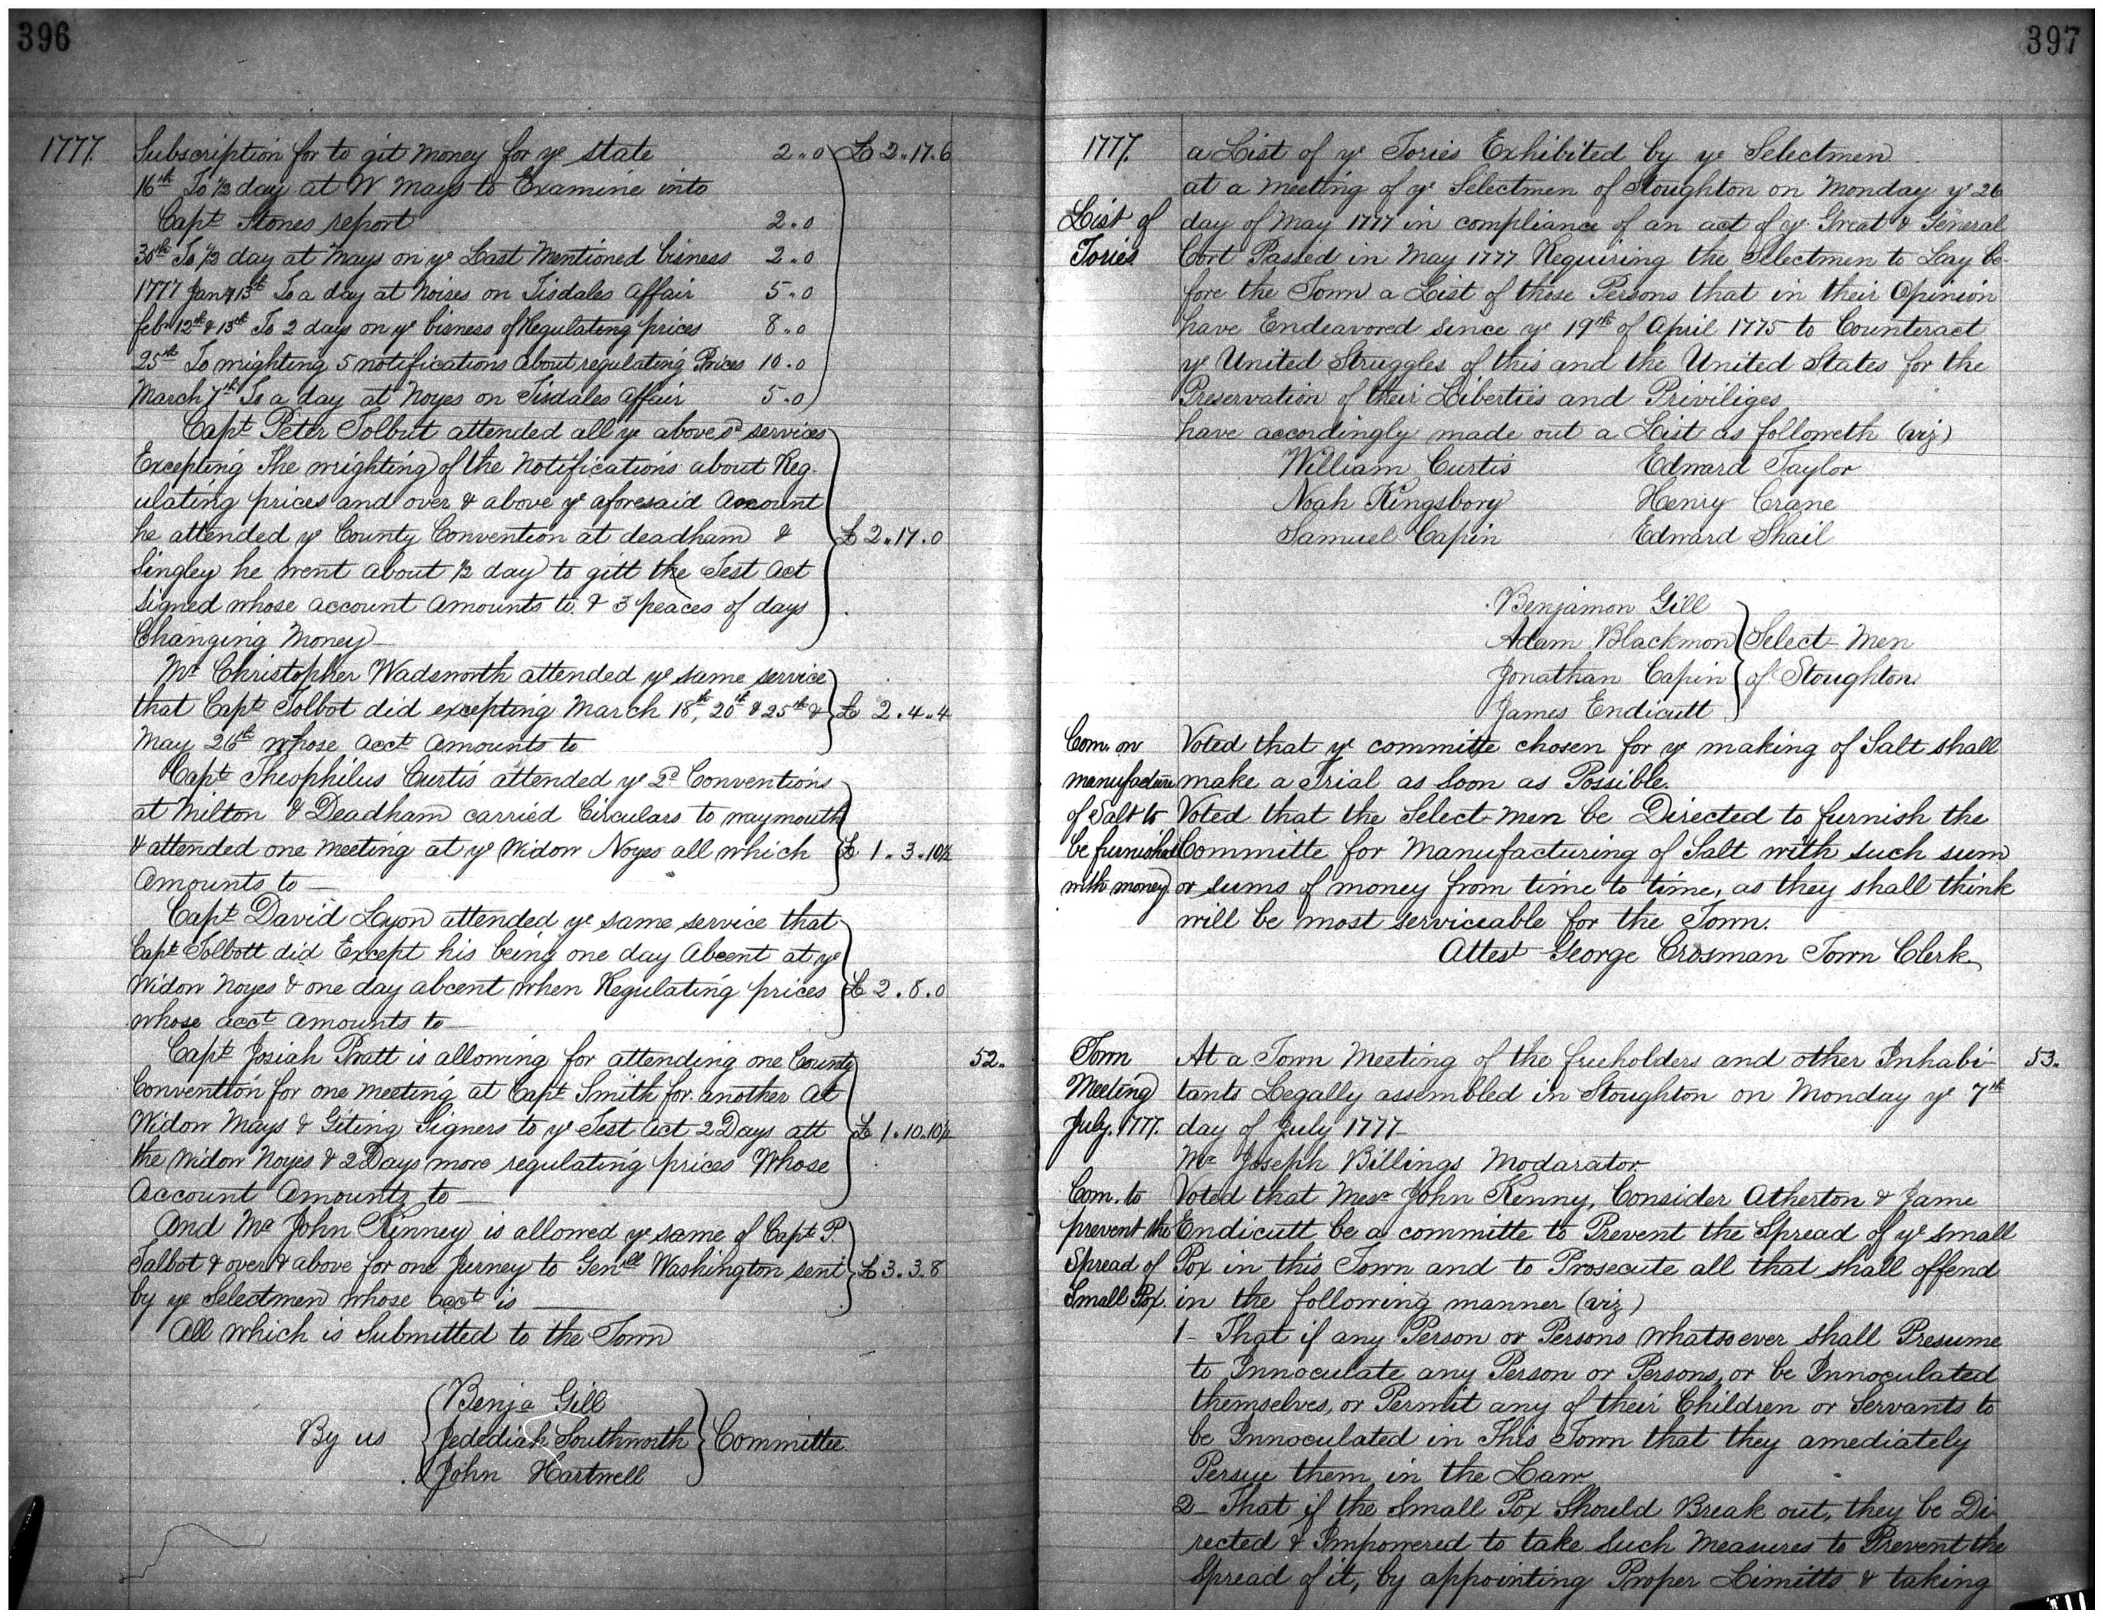 396
1777. Subscription for to git money for ye state 2.0 £ 2.17.6
16th To ½ day at W Mays to Examine into
Capt Stones report 2.0
30th To ½ day at Mays on ye Last Mentioned bisness 2.0
1777 Jany 13th To a day at Noises on Tisdales affair 5.0
feb 12th & 13th To 2 days on ye bisness of Regulating prices 8.0
25th To wrighting 5 notifications about regulating Prices 10.0
March 7th To a day at Noyes on Tisdales affair 5.0
Capt Peter Tolbut attended all ye above sd services
Excepting The wrighting of the Notifications about Reg-
ulating prices and over & above ye aforesaid account
he attended ye County Convention at deadham & £ 2.17.0
Singley he went about ½ day to gitt the Test Act
signed whose account amounts to & 3 peaces of days
Changing Money
Mr Christopher Wadsworth attended ye same service
that Capt Tolbot did excepting March 18th, 20th & 25th & £ 2.4.4
May 26th whose acct amounts to
Capt Theophilus Curtis attended ye 2d Conventions
at Milton & Deadham carried Circulars to waymouth
& attended one meeting at ye Widow Noyes all which £ 1.3.10½
Amounts to
Capt David Lyon attended ye same service that
Capt Tolbott did Except his being one day Abcent at ye
Widow Noyes & one day abcent when Regulating prices £ 2.8.0
whose acct amounts to
Capt Josiah Pratt is allowing for attending one County 52.
Convention for one meeting at Capt Smith for another At
Widow Mays & Giting Signers to ye Test Act 2 Days att £ 1.10.10½
the Widow Noyes & 2 Days more regulating prices Whose
Account Amounts to
And Mr John Kinney is allowed ye same of Capt P.
Talbot & over & above for one Jurney to Genll Washington sent £ 3.3.8
by ye Selectmen whose acct is
All which is Submitted to the Town
Benja Gill
By us Jedediah Southworth Committee
John Hartwell
397
1777. a List of ye Tories Exhibited by ye Selectmen
at a meeting of ye Selectmen of Stoughton on Monday ye 26
List of day of May 1777 in compliance of an act of ye Great & General
Tories Cort Passed in May 1777 Requiring the Selectmen to Lay be-
fore the Town a List of those Persons that in their Opinion
have Endeavored since ye 19th of April 1775 to Counteract
ye United Struggles of this and the United States for the
Preservation of their Liberties and Priviliges
have accordingly made out a List as followeth (viz)
William Curtis Edward Taylor
Noah Kingsbory Henry Crane
Samuel Capin Edward Shail
Benjamon Gill
Adam Blackmon Select Men
Jonathan Capin of Stoughton
James Endicutt
Com. on Voted that ye committe chosen for ye making of Salt shall
manufacture make a Trial as Soon as Possible.
of Salt to Voted that the Select-men be Directed to furnish the
be furnished Committe for Manufacturing of Salt with such sum
with money. or sums of money from time to time, as they shall think
will be most serviceable for the Town.
Attest George Crosman Town Clerk
Town At a Town Meeting of the freeholders and other Inhabi- 53.
Meeting tants Legally assembled in Stoughton on Monday ye 7th
July, 1777. day of July 1777
Mr Joseph Billings Modarator
Com. to Voted that Mesr John Kenny, Consider Atherton & Jame
prevent the Endicutt be a committe to Prevent the Spread of ye small
Spread of Pox in this Town and to Prosecute all that shall offend
Small Pox. in the following manner (viz)
1- That if any Person or Persons whatsoever shall Presume
to Innoculate any Person or Persons, or be Innoculated
themselves, or Permit any of their Children or Servants to
be Innoculated in This Town that they amediately
Persue them in the Law
2- That if the Small Pox Should Break out, they be Di-
rected & Impowered to take such Measures to Prevent the
Spread of it, by appointing Proper Limitts & taking